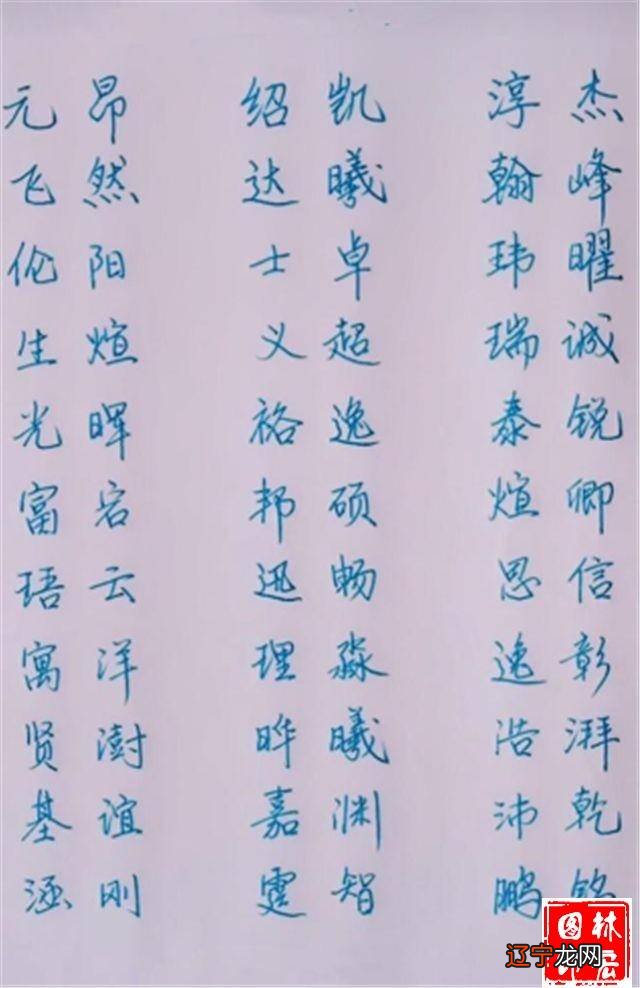 元昂 绍凯 淳杰
飞然 达曦 翰峰
伦阳 士卓 玮曜
生煊 义超 瑞诚
光晖 裕逸 泰锐
富宕 邦硕 煊卿
珸云 迅畅 思信
寓洋 理淼 逸彰
贤澍 晔曦 浩湃
基谊 嘉渊 沛乾
涵刚 霆智 鹏铭
图林
辽宁龙网